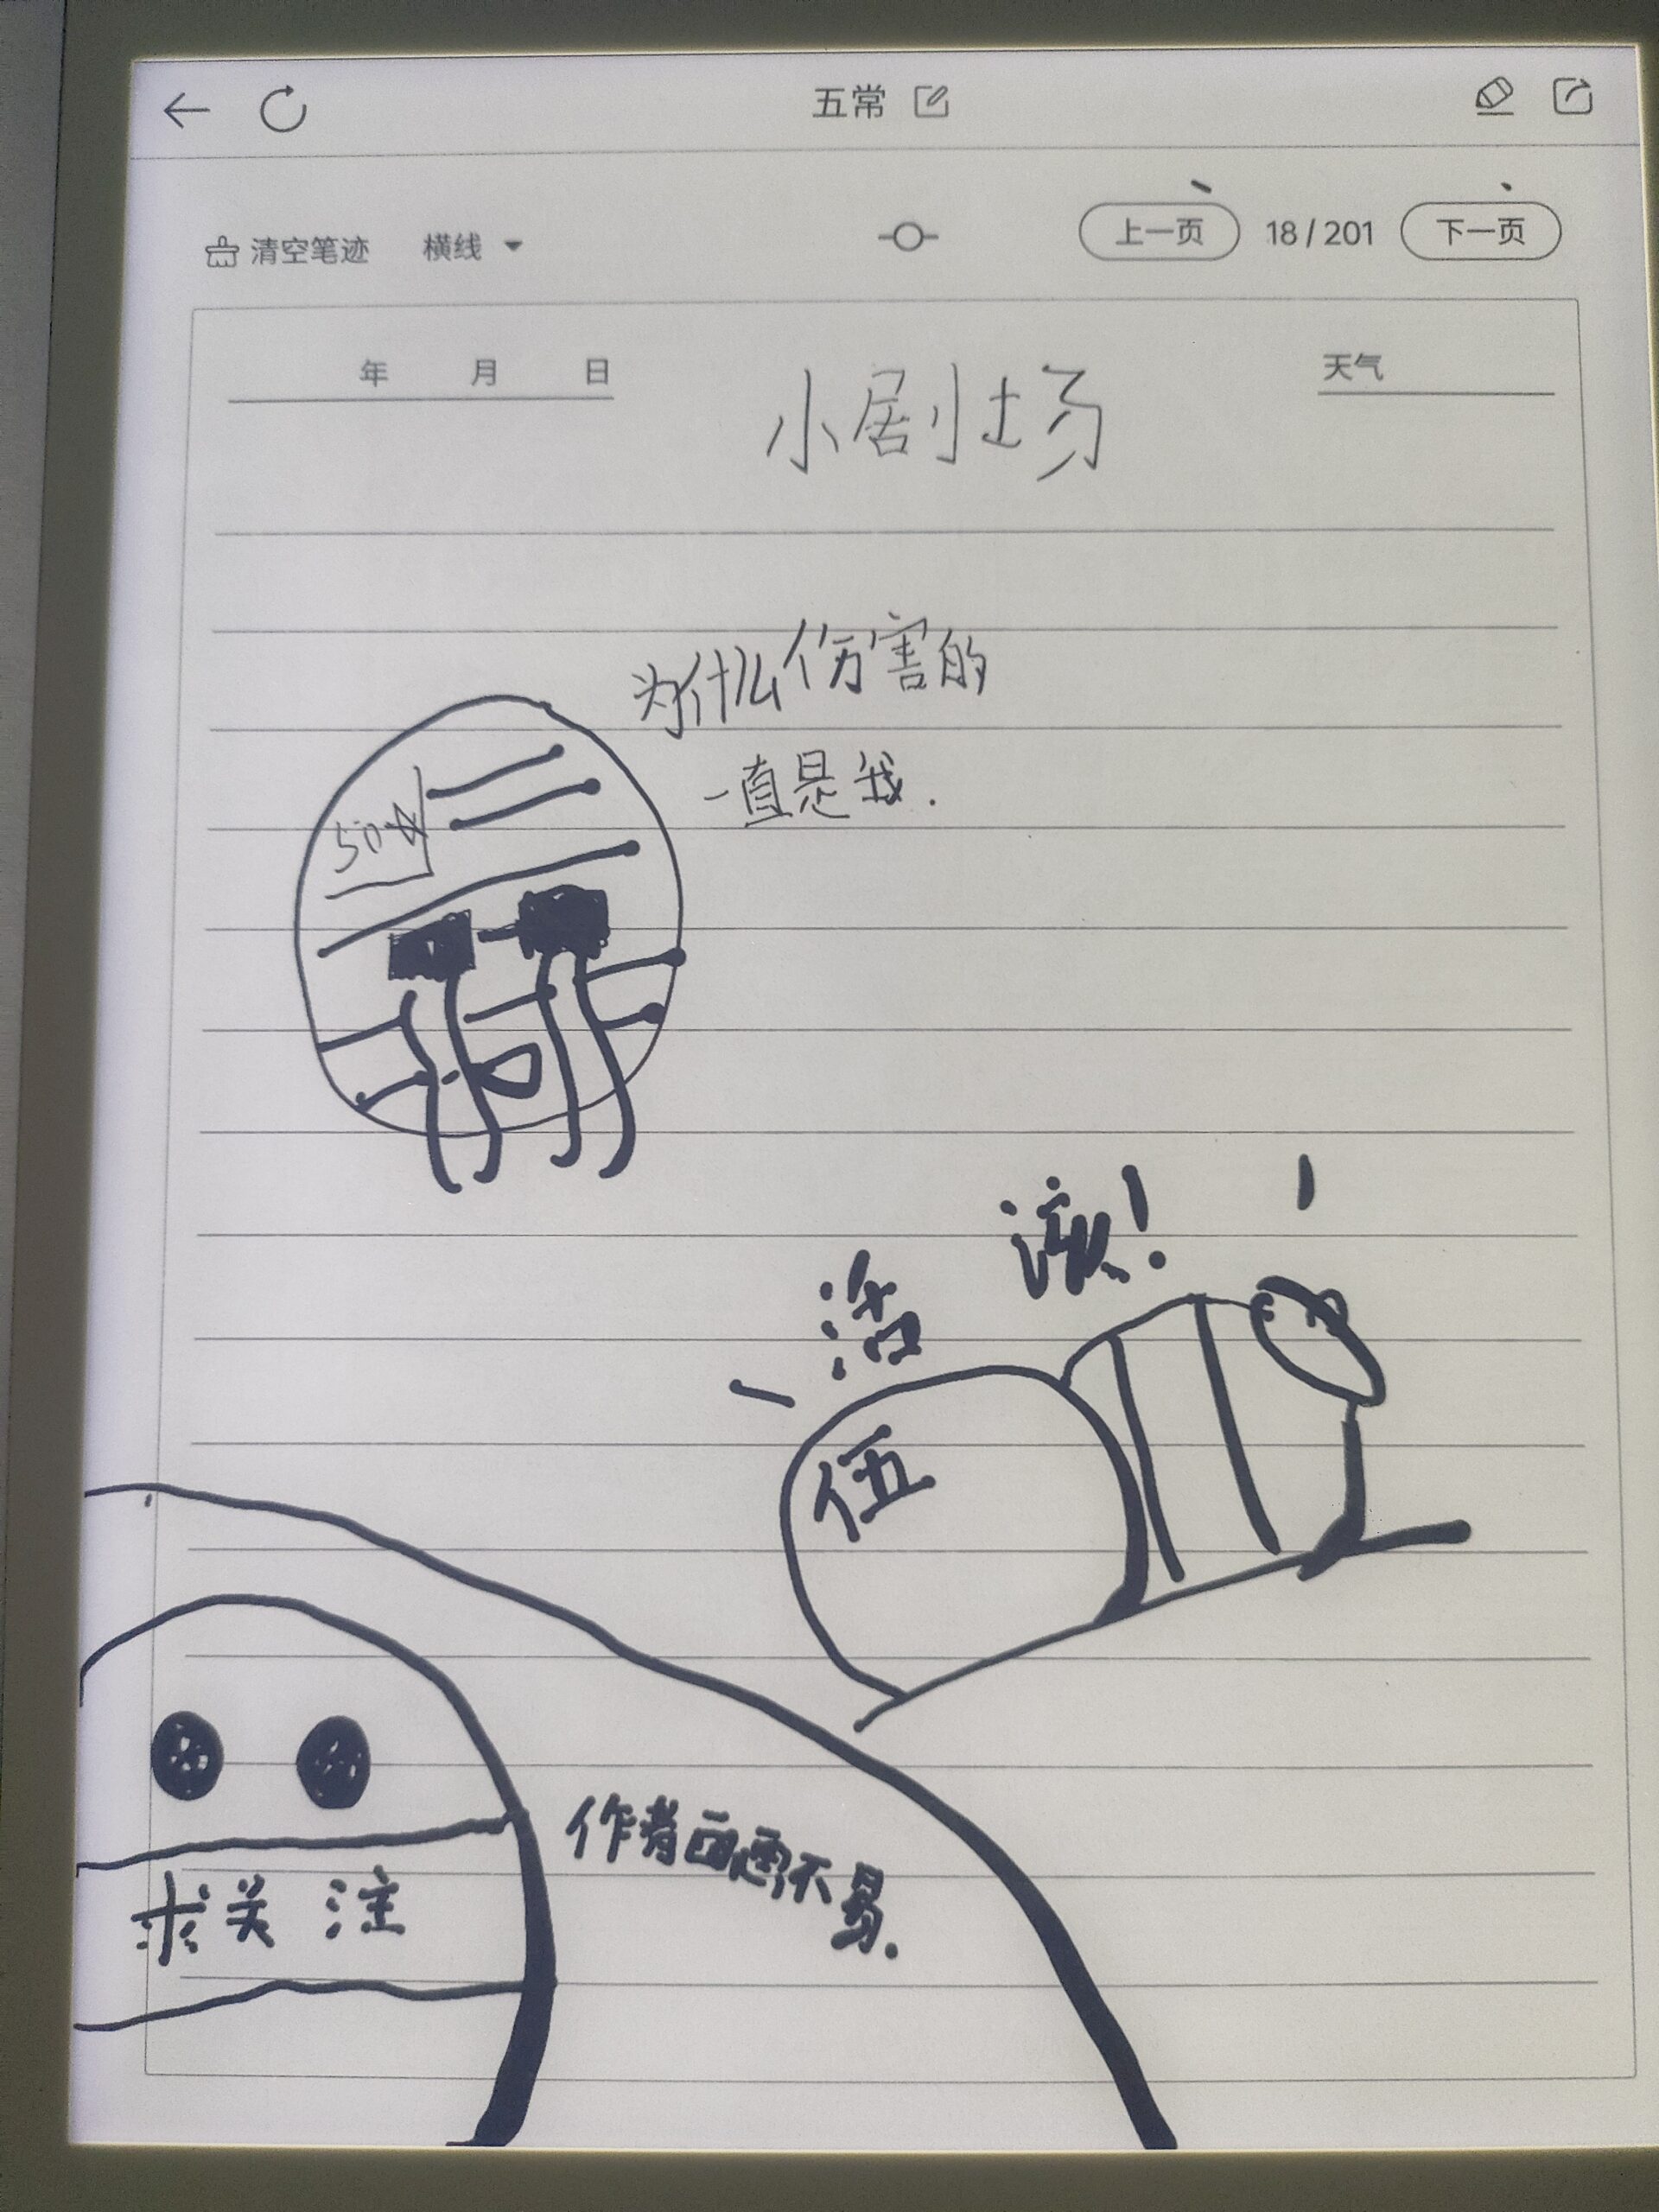 五常
清空笔迹 横线 上一页 18/201 下一页
年 月 日 天气
小剧场
为什么伤害的
一直是我.
活 该!
伍
作者画画不易.
求关注